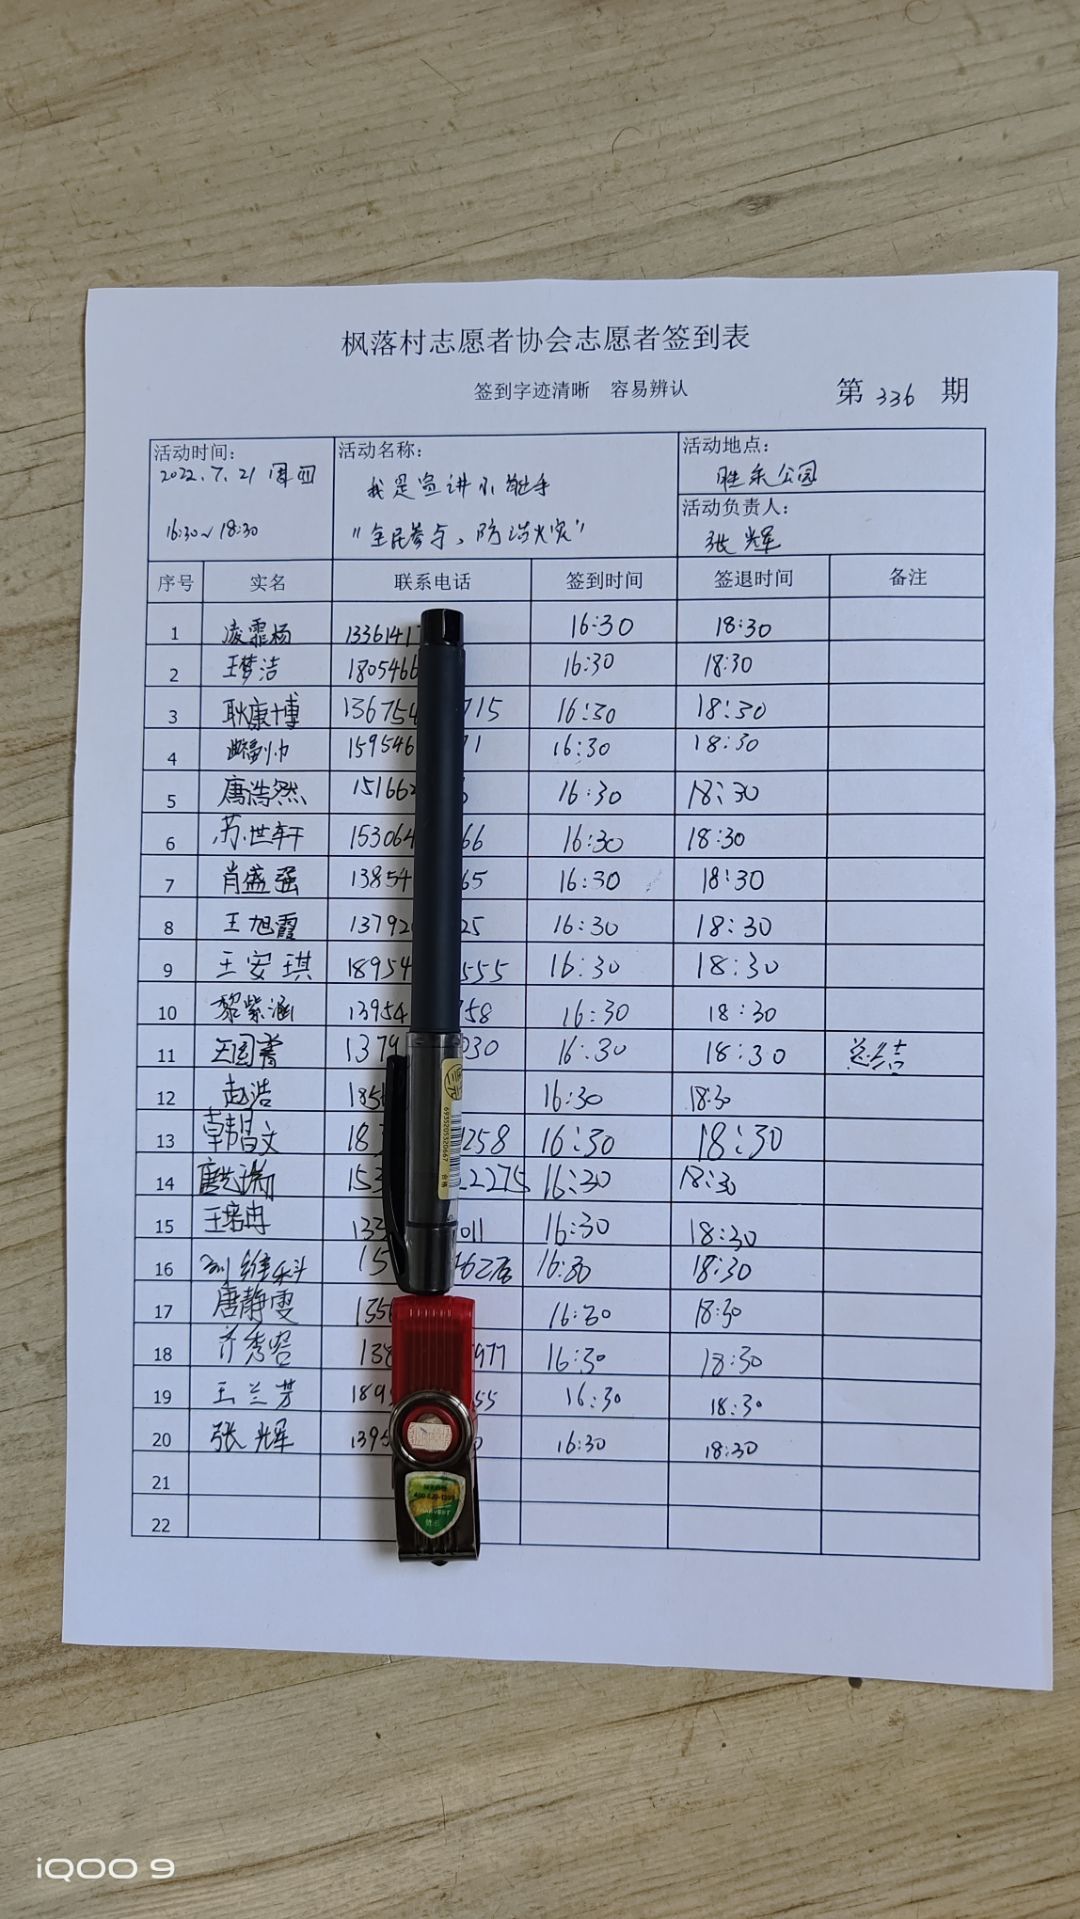 枫落村志愿者协会志愿者签到表
签到字迹清晰 容易辨认
第 336 期
活动时间: 2022.7.21 周四
16:30~18:30
活动名称: 我是宣讲小能手
"全民参与、防治火灾"
活动地点: 胜采公园
活动负责人: 张辉
序号 实名 联系电话 签到时间 签退时间 备注
1 凌霏杨 1336141 16:30 18:30
2 王梦洁 1805466 16:30 18:30
3 耿康博 136754 715 16:30 18:30
4 159546 71 16:30 18:30
5 唐浩然 151662 16:30 18:30
6 苏世轩 153064 66 16:30 18:30
7 肖盛强 13854 65 16:30 18:30
8 王旭霞 13792 25 16:30 18:30
9 王安琪 18954 555 16:30 18:30
10 黎紫涵 13954 758 16:30 18:30
11 1379 030 16:30 18:30 总结
12 赵浩 185 16:30 18:30
13 韩昌文 183 1258 16:30 18:30
14 153 22275 16:30 18:30
15 王培冉 133 011 16:30 18:30
16 15 16:30 18:30
17 唐静雯 135 16:30 18:30
18 138 977 16:30 18:30
19 王兰芳 189 55 16:30 18:30
20 张辉 1395 16:30 18:30
21
22
6935205320667
合格
iQOO 9